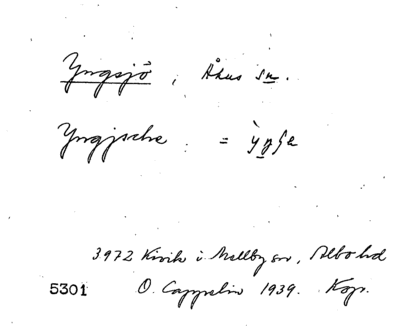 Yngsjö, Åhus sn.
Yngjsche = ỳŋʃe
3972 Kivik i Mellby sn, Albo hd
5301 O. Cappelin 1939. Kop.